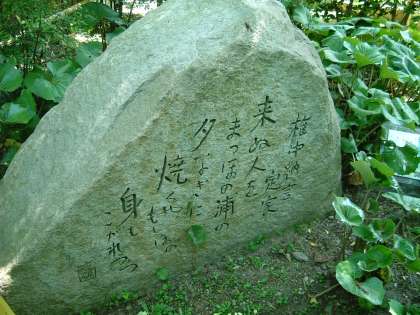 権中納言定家
来ぬ人を
まつほの浦の
夕なぎに
焼くや
もしほの
身も
こがれつゝ